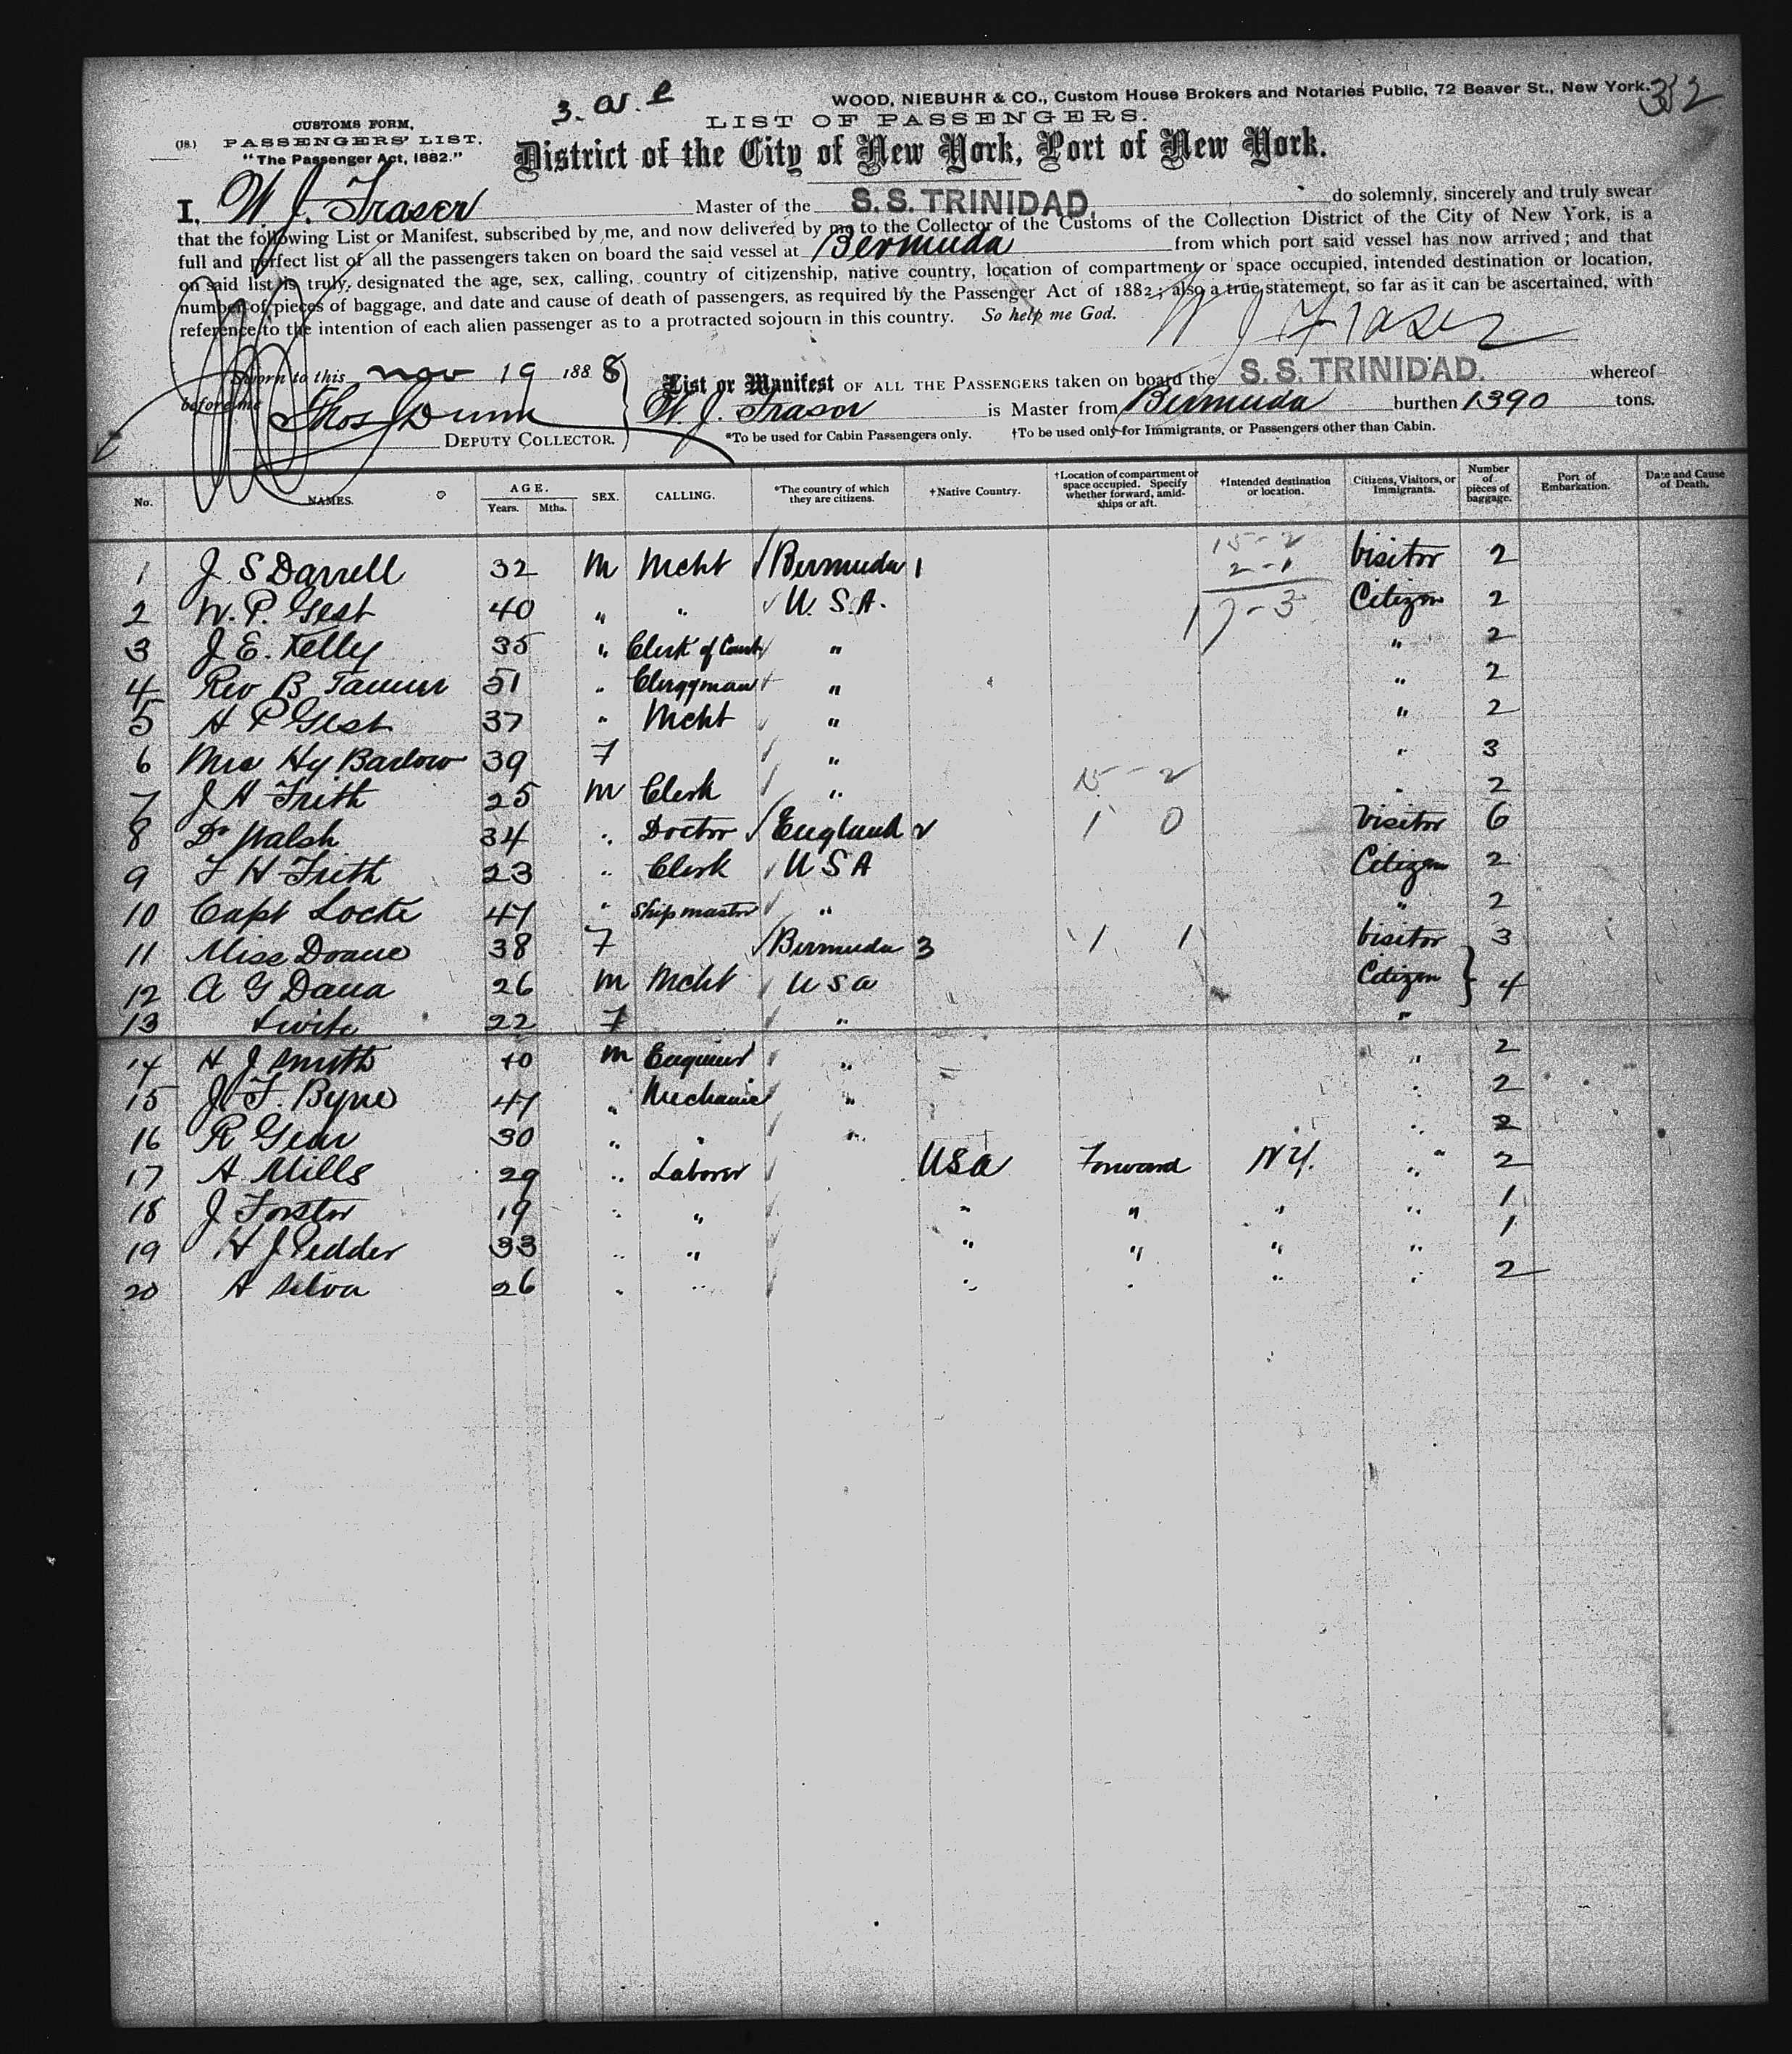 3. a.l. e
WOOD, NIEBUHR & CO., Custom House Brokers and Notaries Public, 72 Beaver St., New York. 332
LIST OF PASSENGERS.
(18.) CUSTOMS FORM,
PASSENGERS' LIST.
"The Passenger Act, 1882."
District of the City of New York, Port of New York.
I, W J. Fraser Master of the S. S. TRINIDAD. do solemnly, sincerely and truly swear
that the following List or Manifest, subscribed by me, and now delivered by me to the Collector of the Customs of the Collection District of the City of New York, is a
full and perfect list of all the passengers taken on board the said vessel at Bermuda from which port said vessel has now arrived; and that
on said list is truly designated the age, sex, calling, country of citizenship, native country, location of compartment or space occupied, intended destination or location,
number of pieces of baggage, and date and cause of death of passengers, as required by the Passenger Act of 1882; also a true statement, so far as it can be ascertained, with
reference to the intention of each alien passenger as to a protracted sojourn in this country. So help me God.
W J Fraser
Sworn to this Nov 19 1888
before me Thos Dunn
DEPUTY COLLECTOR.
List or Manifest OF ALL THE PASSENGERS taken on board the S. S. TRINIDAD. whereof
W. J. Fraser is Master from Bermuda burthen 1390 tons.
*To be used for Cabin Passengers only. †To be used only for Immigrants, or Passengers other than Cabin.
No. NAMES. AGE. Years. Mths. SEX. CALLING. *The country of which they are citizens. †Native Country. †Location of compartment or space occupied. Specify whether forward, amidships or aft. †Intended destination or location. Citizens, Visitors, or Immigrants. Number of pieces of baggage. Port of Embarkation. Date and Cause of Death.
15-2
2-1
17-3
1 J. S Darrell 32 M Mcht Bermuda 1 Visitor 2
2 W. P. Gest 40 " " U. S. A. Citizen 2
3 J. E. Kelly 35 " Clerk of Court " " 2
4 Rev B Tanner 51 " Clergyman " " 2
5 A P Gest 37 " Mcht " " 2
6 Mrs Hy Barlow 39 F " " 3
7 J H Frith 25 M Clerk " 15-2 " 2
8 Dr Walsh 34 " Doctor England 2 1 0 Visitor 6
9 F H Frith 23 " Clerk U S A Citizen 2
10 Capt Locke 47 " Ship master " " 2
11 Miss Doane 38 F Bermuda 3 1 1 Visitor 3
12 A G Dana 26 M Mcht U S A Citizen } 4
13 & wife 22 F " "
14 H J Smith 40 M Engineer " " 2
15 J. F. Byne 47 " Mechanic " " 2
16 R Gear 30 " " " " 2
17 A Mills 29 " Laborer USA Forward N Y. " 2
18 J Forster 19 " " " " " " 1
19 H J Pedder 33 " " " " " " 1
20 A Silva 26 " " " " " " 2